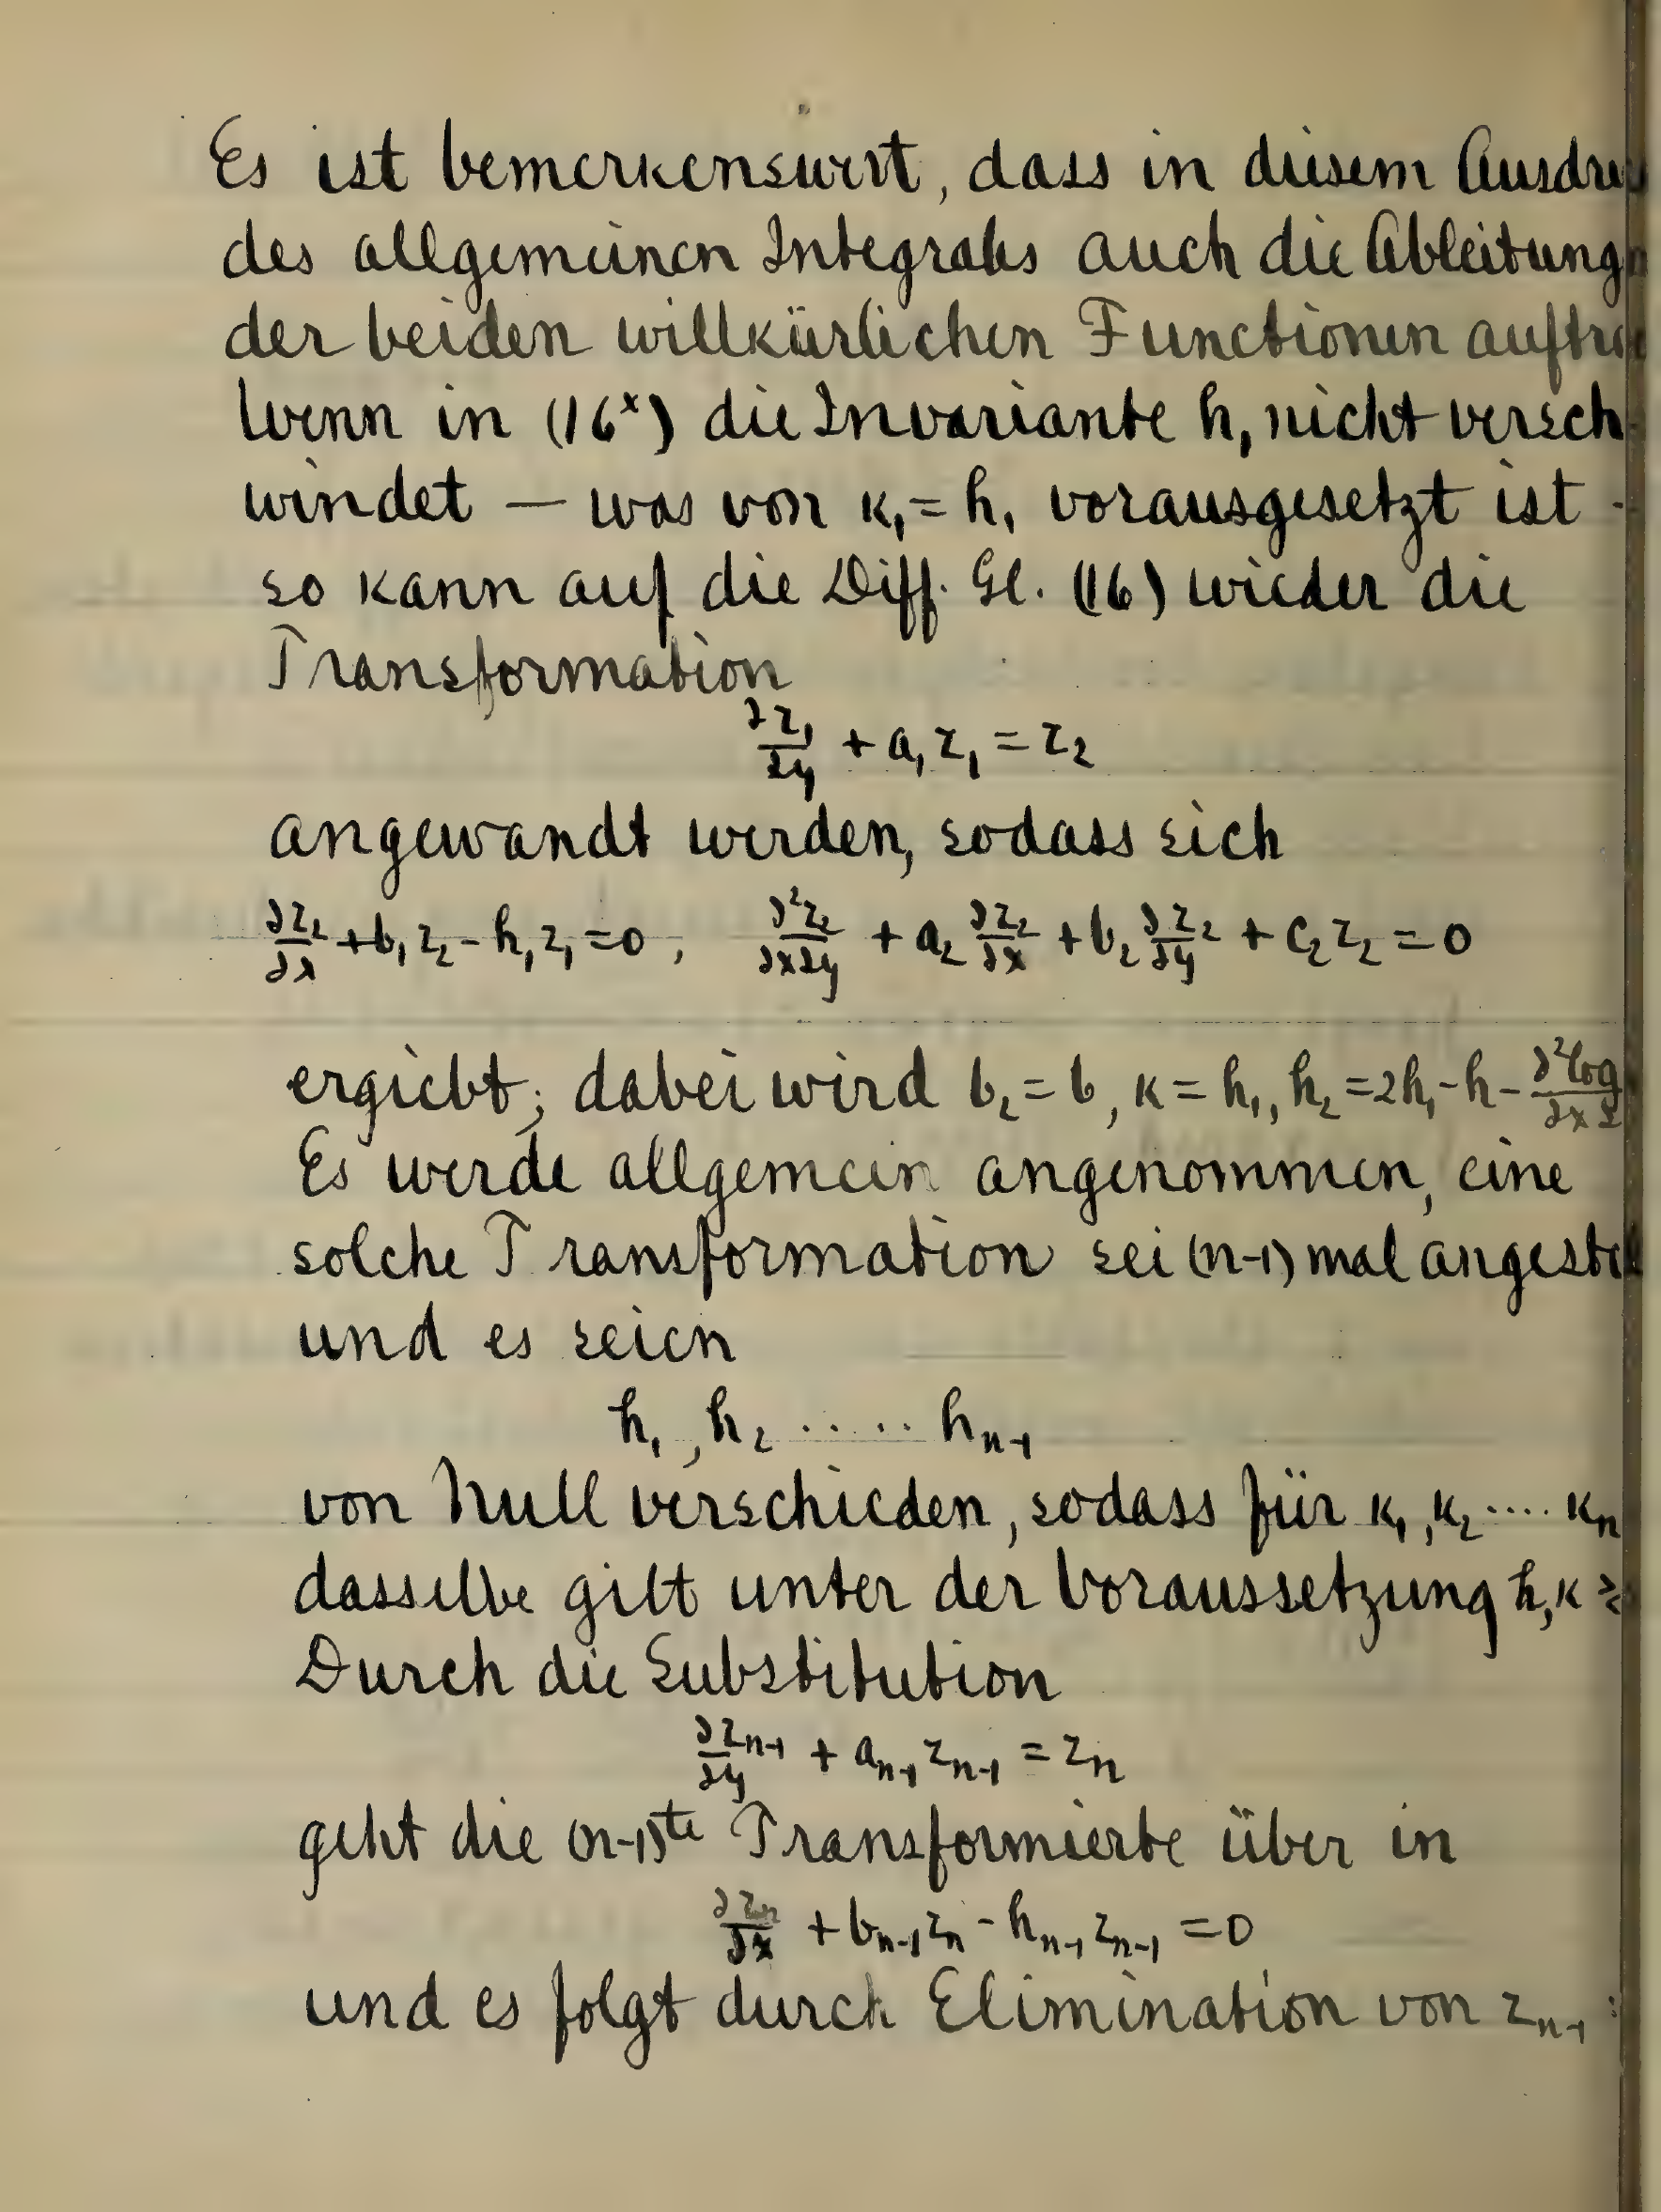 Es ist bemerkenswert, dass in diesem Ausdru
des allgemeinen Integrals auch die Ableitung
der beiden willkürlichen Functionen auftre
Wenn in (16ˣ) die Invariante h₁ nicht versch
windet — was von κ₁ = h₁ vorausgesetzt ist -
so kann auf die Diff. Gl. (16) wieder die
Transformation
∂z₁/∂y + a₁ z₁ = z₂
angewandt werden, sodass sich
∂z₂/∂x + b₁ z₂ - h₁ z₁ = 0, ∂²z₂/∂x∂y + a₂ ∂z₂/∂x + b₂ ∂z₂/∂y + c₂ z₂ = 0
ergiebt; dabei wird b₂ = b, κ = h₁, h₂ = 2h₁ - h - ∂² log/∂x∂
Es werde allgemein angenommen, eine
solche Transformation sei (n-1) mal angeste
und es seien
h₁, h₂ ..... hₙ₋₁
von Null verschieden, sodass für κ₁, κ₂ .... κₙ
dasselbe gilt unter der Voraussetzung h, κ ≷
Durch die Substitution
∂zₙ₋₁/∂y + aₙ₋₁ zₙ₋₁ = zₙ
geht die (n-1)te Transformierte über in
∂zₙ/∂x + bₙ₋₁ zₙ - hₙ₋₁ zₙ₋₁ = 0
und es folgt durch Elimination von zₙ₋₁ :